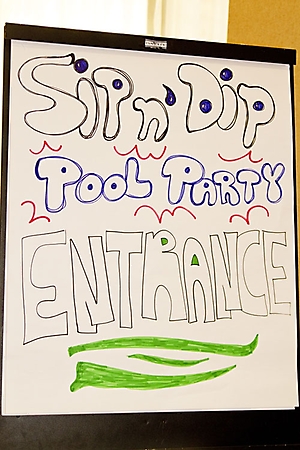 Sip n' Dip
POOL PARTY
ENTRANCE